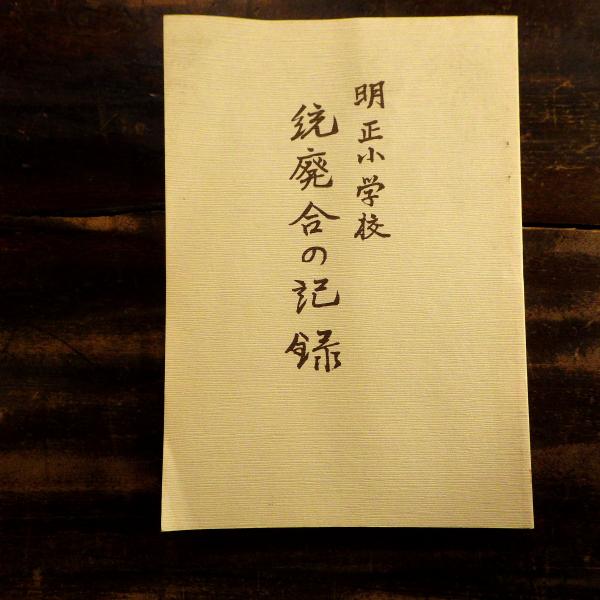 明正小学校
統廃合の記録